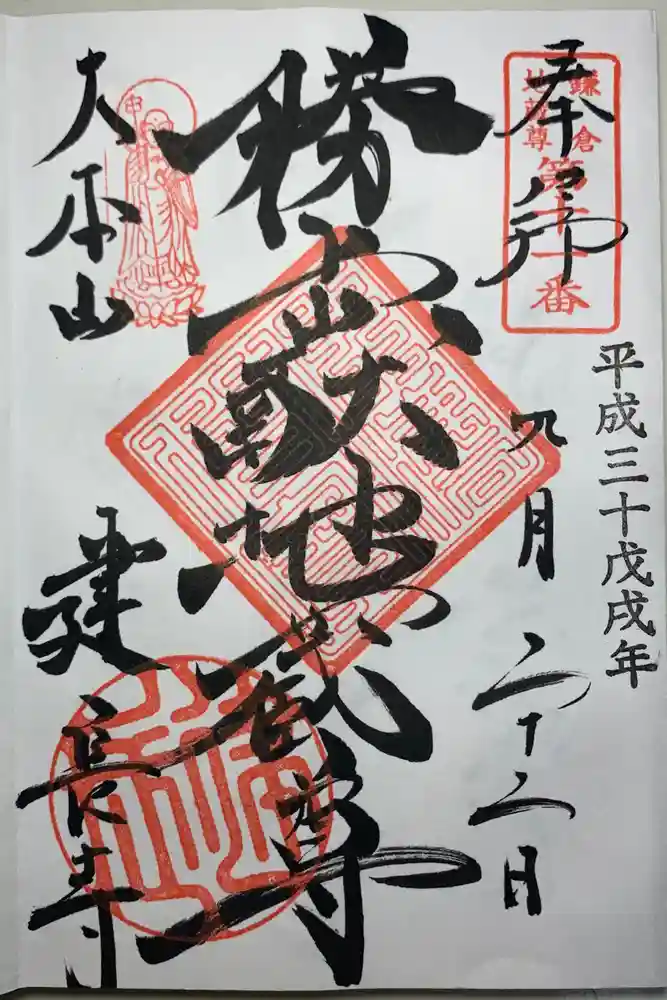 平成三十戊戌年
奉拝
九月二十二日
鎌倉
地蔵尊
第十一番
勝上嶽地蔵尊
大本山
建長寺